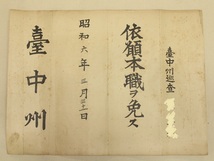 臺中州巡査
依願本職ヲ免ス
昭和六年三月三十一日
臺中州